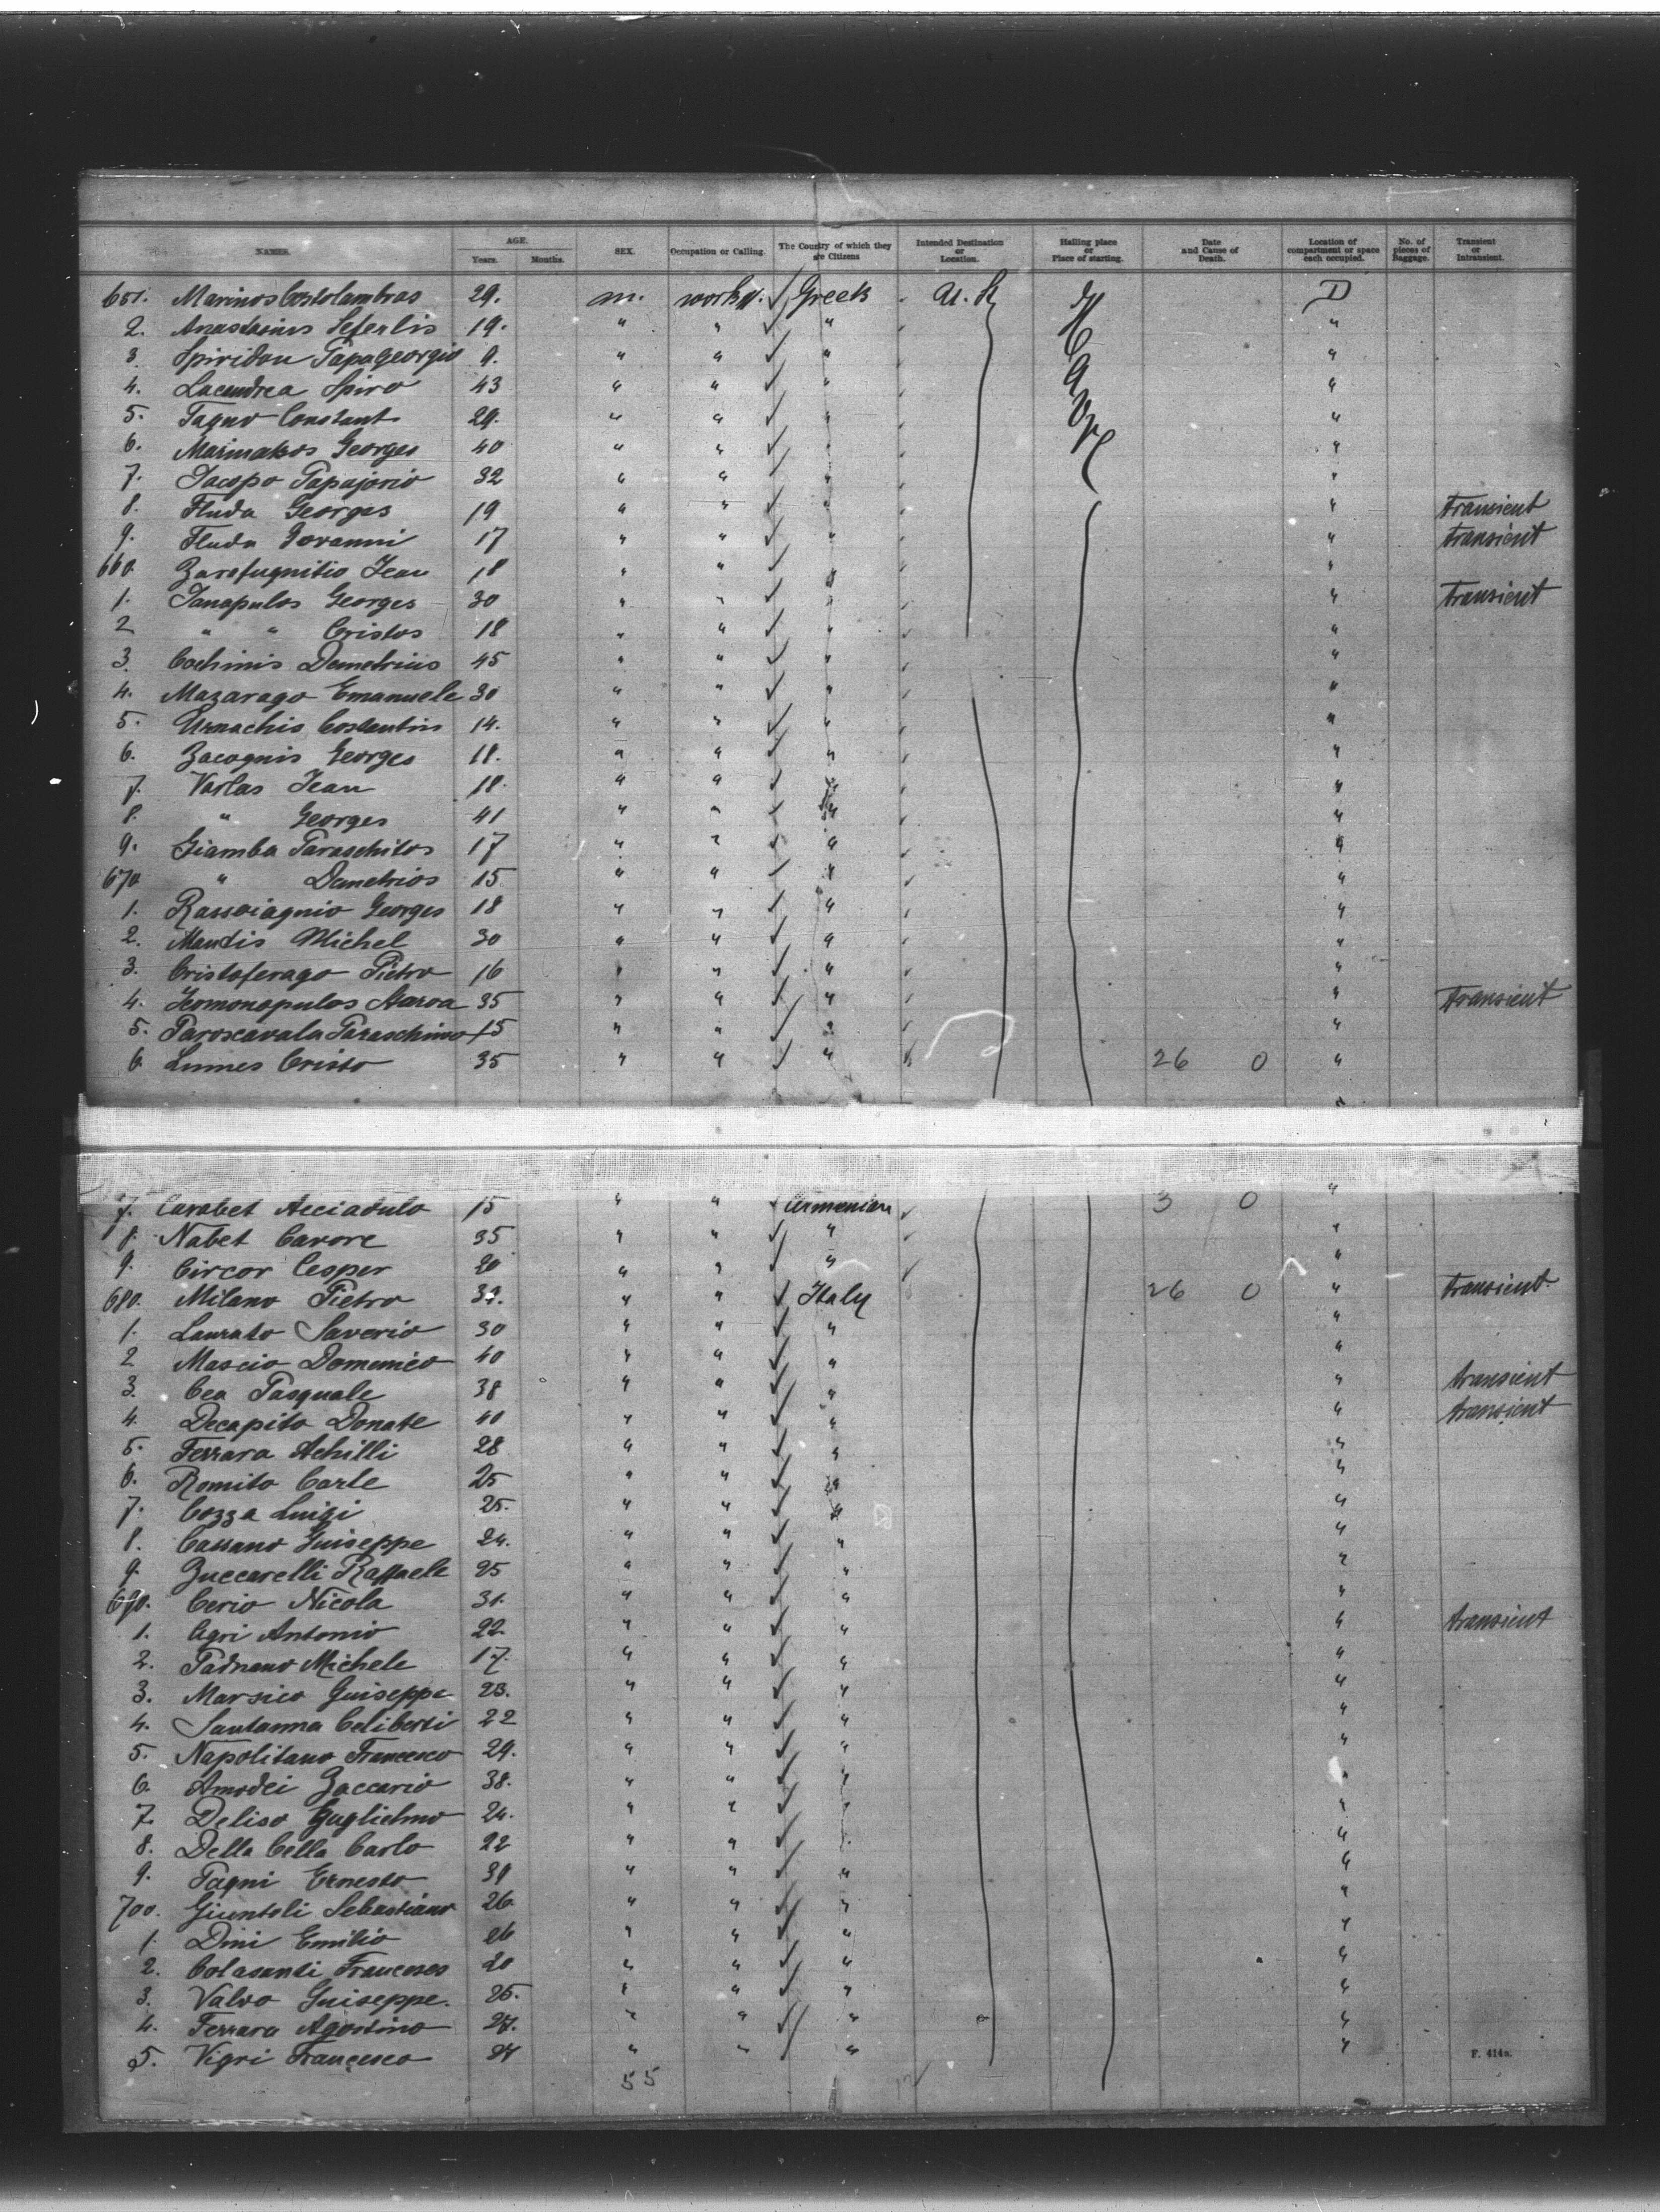 NAMES. AGE. Years. Months. SEX. Occupation or Calling. The Country of which they are Citizens Intended Destination or Location. Hailing place or Place of starting. Date and Cause of Death. Location of compartment or space each occupied. No. of pieces of Baggage. Transient or Intransient.
651. Marinos Costolambros 29. m. workm. Greek U. S. Havre D
2. Anastasius Seferlis 19. " " " "
3. Spiridon Papageorgio 9. " " " "
4. Lacendrea Spiro 43 " " " "
5. Tagno Constant 29. " " " "
6. Marinakos Georges 40 " " " "
7. Jacopo Papajorio 32 " " " "
8. Fluda Georges 19 " " " " transient
9. Fluda Govanni 17 " " " " transient
660. Zarofugnitio Jean 18 " " " "
1. Janapulos Georges 30 " " " " transient
2 " " Cristos 18 " " " "
3. Cochinis Demetrius 45 " " " "
4. Mazarago Emanuele 30 " " " "
5. Urnachis Costantin 14. " " " "
6. Zacagnis Georges 18. " " " "
7. Varlas Jean 18. " " " "
8. " Georges 41 " " " "
9. Giamba Paraschitos 17 " " " "
670 " Demetrios 15 " " " "
1. Rassoiagnio Georges 18 " " " "
2. Mandis Michel 30 " " " "
3. Cristoferago Pietro 16 " " " "
4. Komonopulos Starva 35 " " " " transient
5. Paroscavala Paraschino 15 " " " "
6. Lumes Cristo 35 " " " 26 0 "
7. Carabet Acciadulo 15 " " Armenian 3 0 "
8. Nabet Carore 35 " " " "
9. Circor Cesper 20 " " " "
680. Milano Pietro 32. " " Italy 26 0 " transient
1. Laurato Saverio 30 " " " "
2 Mascio Domenico 40 " " " "
3. Cea Pasquale 38 " " " " transient
4. Decapito Donate 40 " " " " transient
5. Ferrara Achilli 28 " " " "
6. Romito Carle 25 " " " "
7. Cozza Luigi 25. " " " "
8. Cassano Guiseppe 24. " " " "
9. Zuccarelli Raffaele 25 " " " "
690. Cerio Nicola 31. " " " "
1. Agri Antonio 22. " " " " transient
2. Padnano Michele 17. " " " "
3. Marsico Guiseppe 23. " " " "
4. Santanna Celiberti 22 " " " "
5. Napolitano Francesco 29. " " " "
6. Amodei Zaccario 38. " " " "
7. Deliso Guglielmo 24. " " " "
8. Della Cella Carlo 22 " " " "
9. Pagni Ernesto 39 " " " "
700. Giuntoli Sebastiano 26 " " " "
1. Dini Emilio 26 " " " "
2. Colasanti Francesco 20 " " " "
3. Valvo Guiseppe. 25. " " " "
4. Ferrara Agostino 27. " " " "
5. Vigri Francesco 27 " " " "
F. 414a.
55